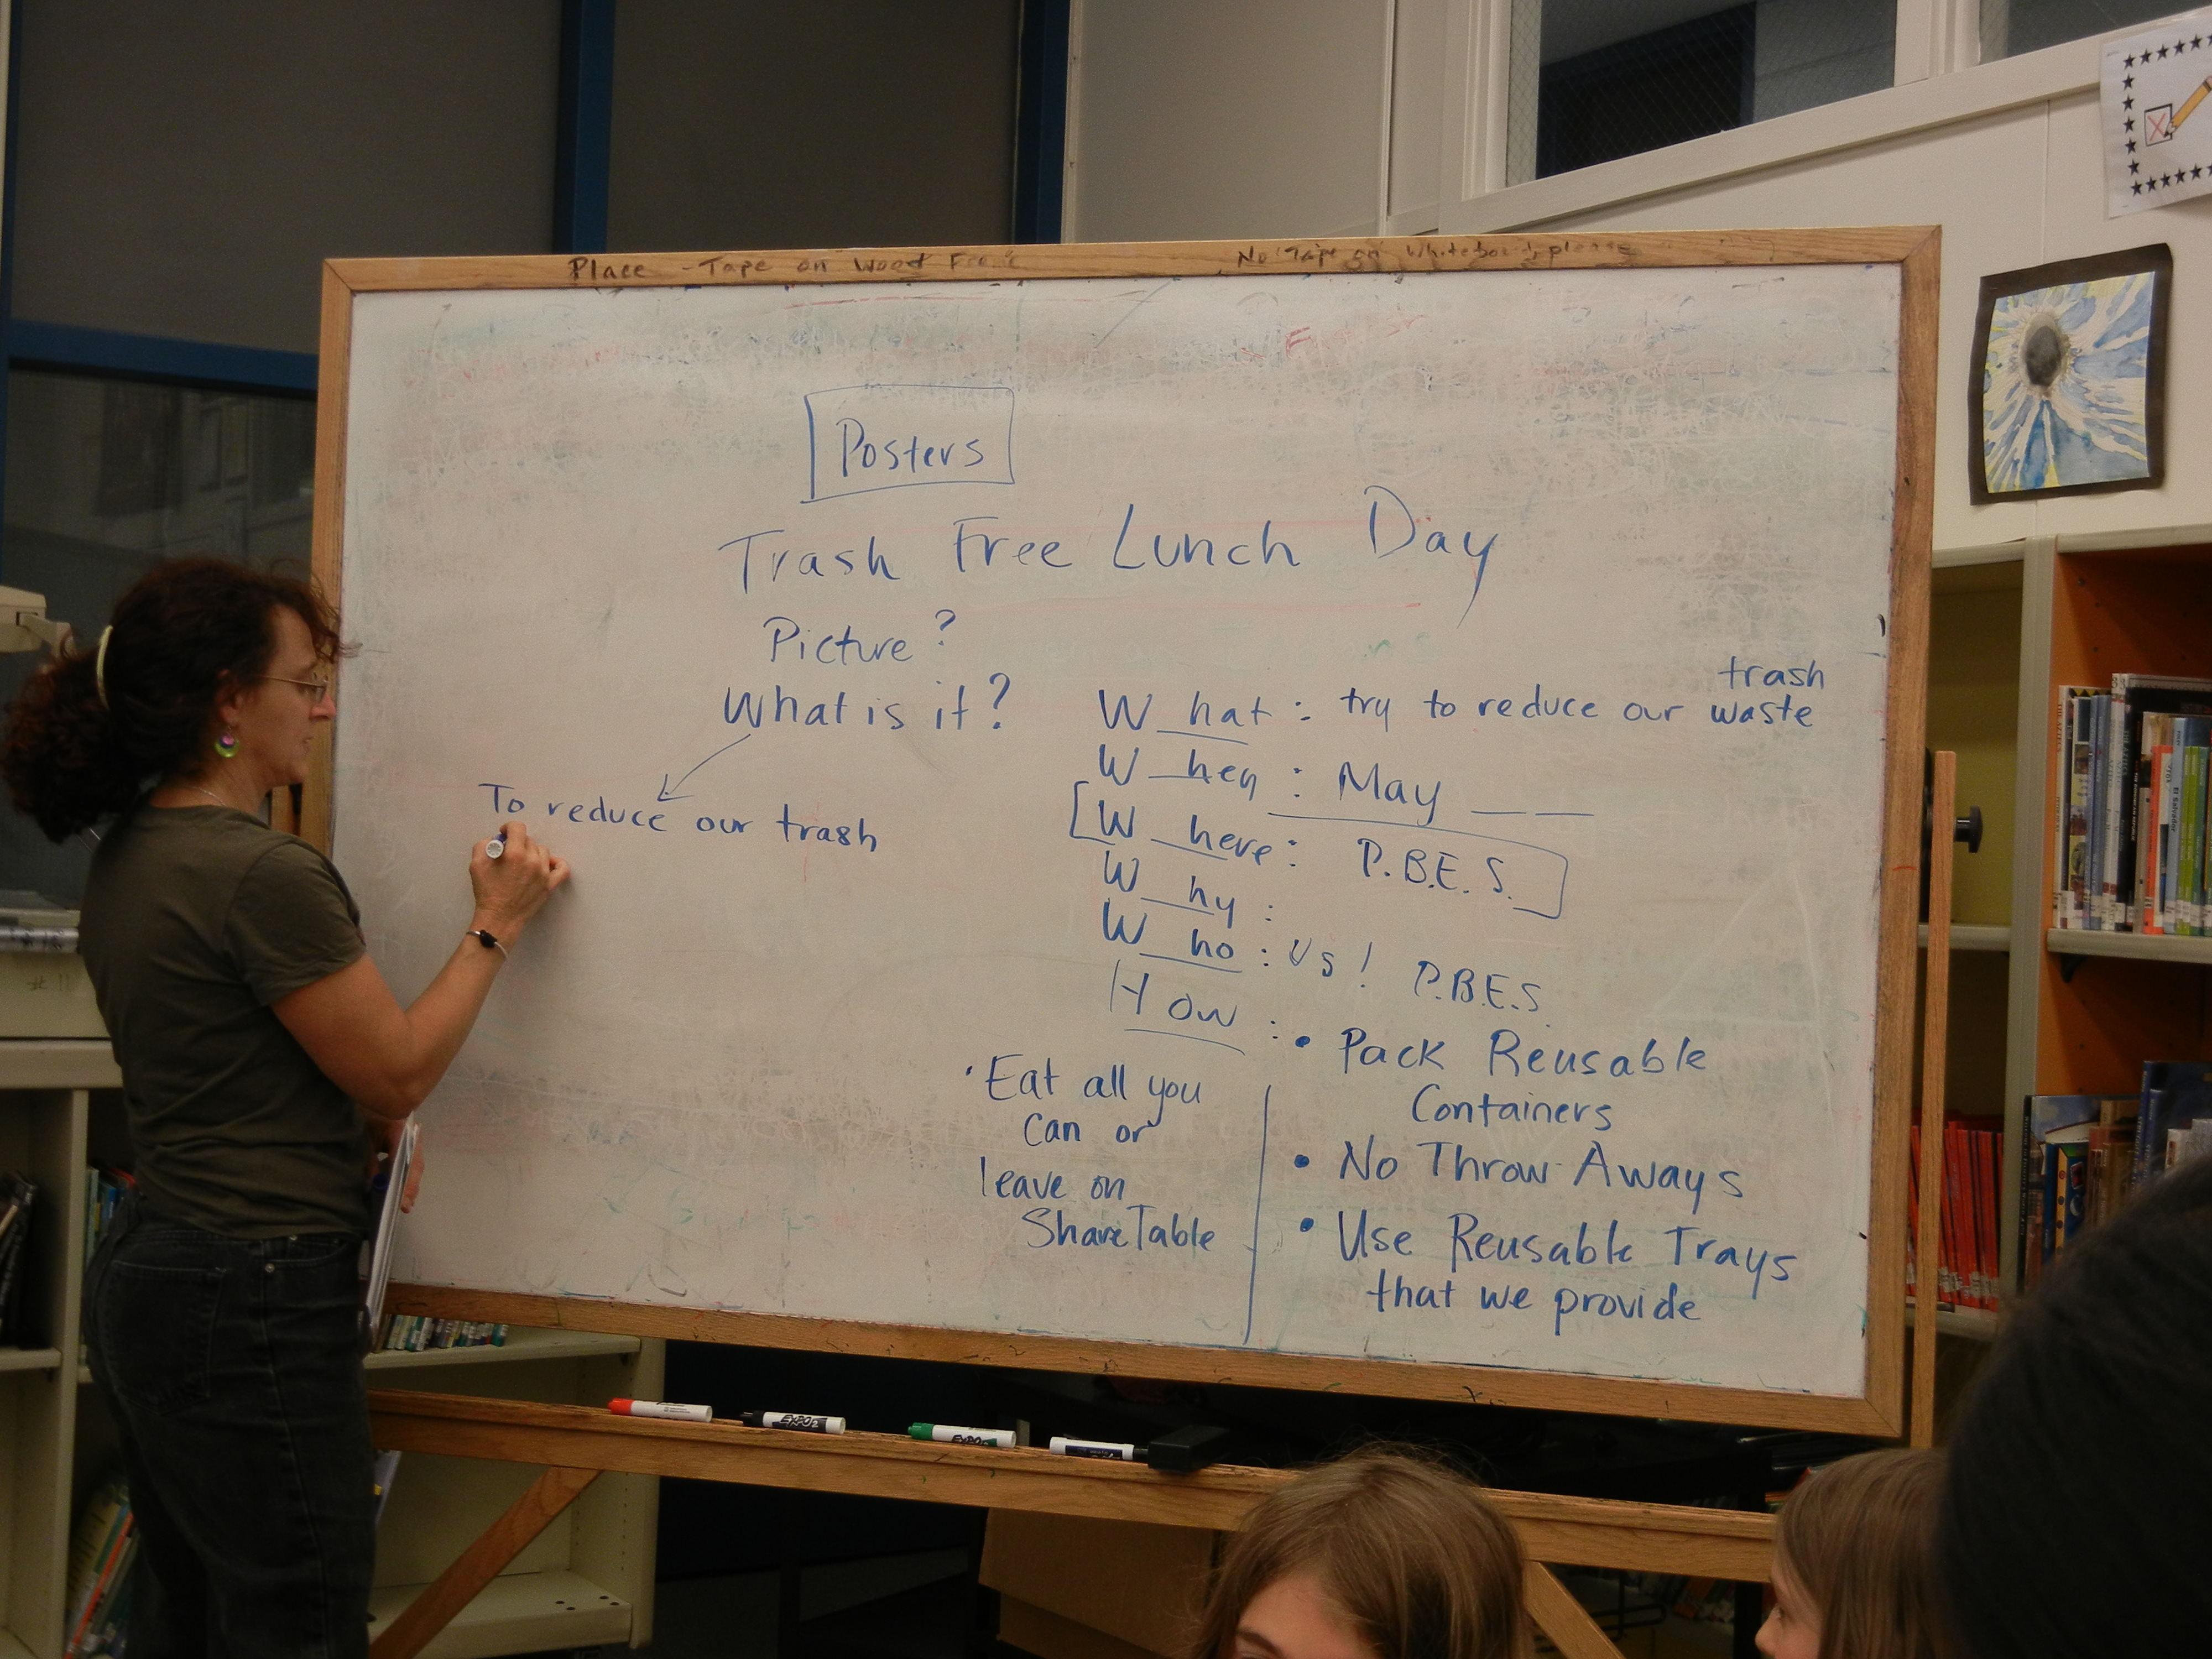 Place Tape on Wood
No Tape on Whiteboard, please
Posters
Trash Free Lunch Day
Picture?
What is it?
To reduce our trash
trash
What: try to reduce our waste
When: May __ __
Where: P.B.E.S.
Why:
Who: Us! P.B.E.S.
How:
• Pack Reusable
Containers
• No Throw Aways
• Use Reusable Trays
that we provide
• Eat all you
can or
leave on
Share Table
EXPO 2
EXPO